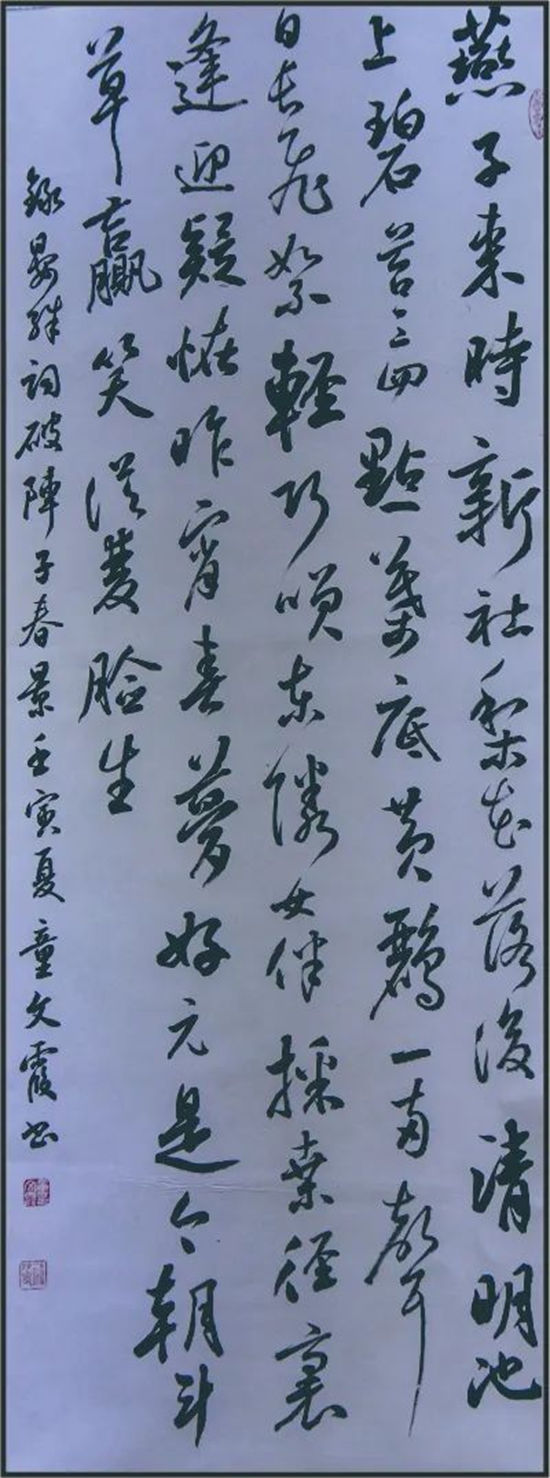 燕子来時新社梨花落後清明池
上碧苔三四點葉底黄鸝一兩聲
日長飛絮輕巧唤東隣女伴採桑徑裏
逢迎疑怪昨宵春夢好元是今朝斗
草赢笑従雙臉生
録晏殊詞破陣子春景壬寅夏童文霞书